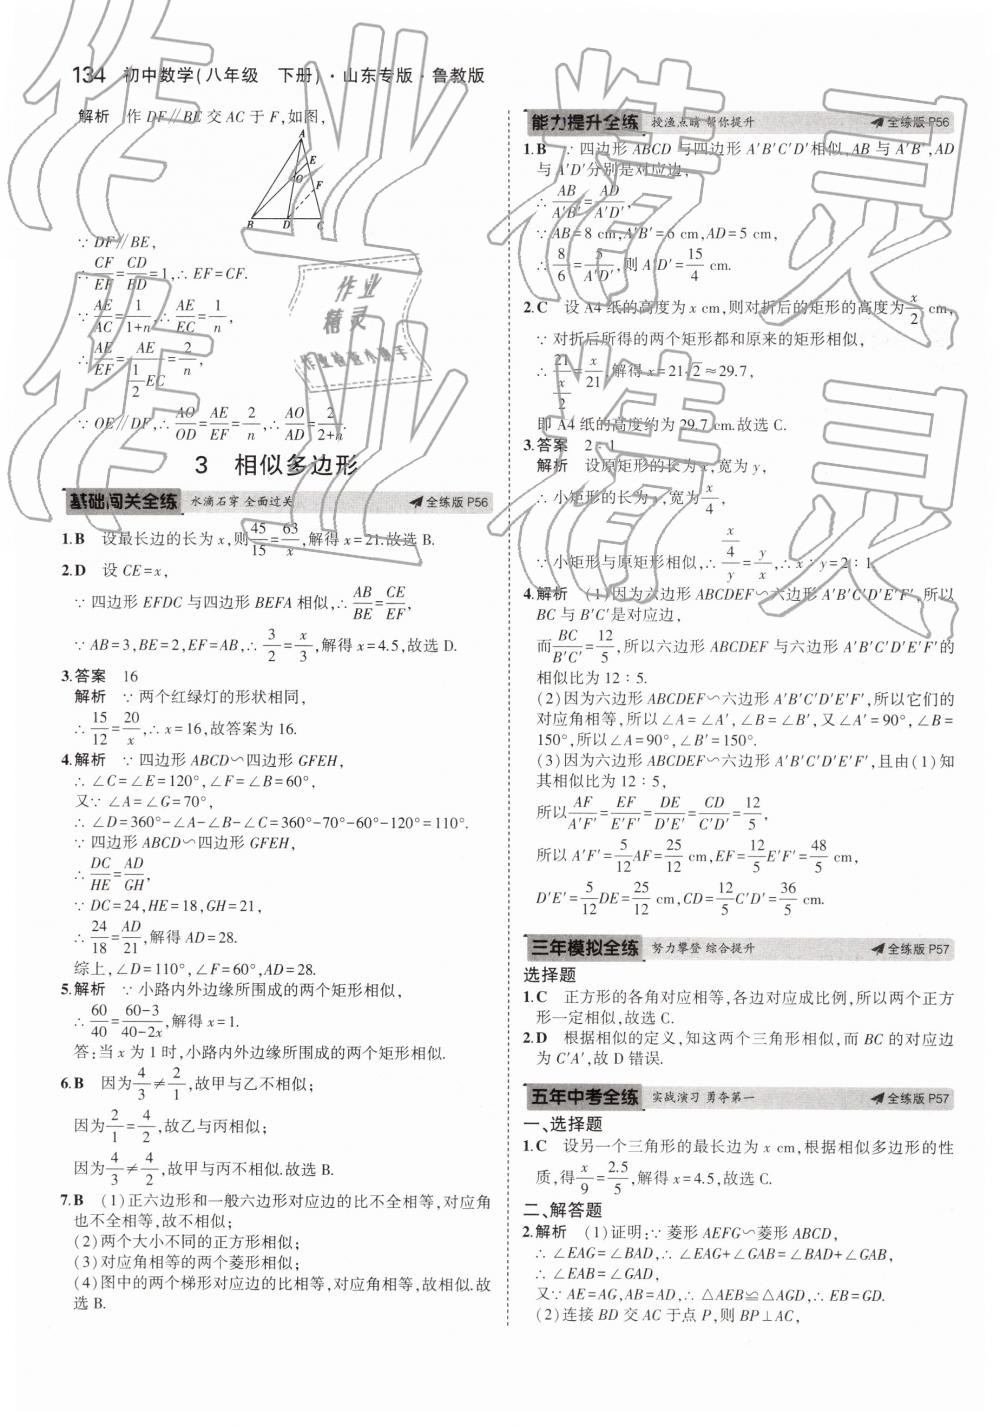 134 初中数学(八年级 下册)·山东专版·鲁教版
解析 作 DF∥BE 交 AC 于 F,如图,
A
E
O
F
B D C
∵ DF∥BE,
∴ CF/EF=CD/BD=1,∴ EF=CF.
∵ AE/AC=1/(1+n),∴ AE/EC=1/n,
∴ AE/EF=AE/(1/2 EC)=2/n,
∵ OE∥DF,∴ AO/OD=AE/EF=2/n,∴ AO/AD=2/(2+n).
3 相似多边形
基础闯关全练 水滴石穿 全面过关 全练版 P56
1.B 设最长边的长为 x,则45/15=63/x,解得 x=21.故选 B.
2.D 设 CE=x,
∵ 四边形 EFDC 与四边形 BEFA 相似,∴ AB/BE=CE/EF,
∵ AB=3,BE=2,EF=AB,∴ 3/2=x/3,解得 x=4.5,故选 D.
3.答案 16
解析 ∵ 两个红绿灯的形状相同,
∴ 15/12=20/x,∴ x=16,故答案为 16.
4.解析 ∵ 四边形 ABCD∽四边形 GFEH,
∴ ∠C=∠E=120°,∠F=∠B=60°,
又∵ ∠A=∠G=70°,
∴ ∠D=360°-∠A-∠B-∠C=360°-70°-60°-120°=110°.
∵ 四边形 ABCD∽四边形 GFEH,
∴ DC/HE=AD/GH,
∵ DC=24,HE=18,GH=21,
∴ 24/18=AD/21,解得 AD=28.
综上,∠D=110°,∠F=60°,AD=28.
5.解析 ∵ 小路内外边缘所围成的两个矩形相似,
∴ 60/40=(60-3)/(40-2x),解得 x=1.
答:当 x 为 1 时,小路内外边缘所围成的两个矩形相似.
6.B 因为4/3≠2/1,故甲与乙不相似;
因为2/1=4/2,故乙与丙相似;
因为4/3≠4/2,故甲与丙不相似.故选 B.
7.B (1)正六边形和一般六边形对应边的比不全相等,对应角
也不全相等,故不相似;
(2)两个大小不同的正方形相似;
(3)对应角相等的两个菱形相似;
(4)图中的两个梯形对应边的比相等,对应角相等,故相似.故
选 B.
能力提升全练 授渔点睛 帮你提升 全练版 P56
1.B ∵ 四边形 ABCD 与四边形 A′B′C′D′相似,AB 与 A′B′,AD
与 A′D′分别是对应边,
∴ AB/A′B′=AD/A′D′,
∵ AB=8 cm,A′B′=6 cm,AD=5 cm,
∴ 8/6=5/A′D′,则 A′D′=15/4 cm.
2.C 设 A4 纸的高度为 x cm,则对折后的矩形的高度为x/2 cm,
∵ 对折后所得的两个矩形都和原来的矩形相似,
∴ 21/(x/2)=x/21,解得 x=21√2≈29.7,
即 A4 纸的高度约为 29.7 cm.故选 C.
3.答案 2∶1
解析 设原矩形的长为 x,宽为 y,
∴ 小矩形的长为 y,宽为x/4,
∵ 小矩形与原矩形相似,∴ (x/4)/y=y/x,∴ x∶y=2∶1.
4.解析 (1)因为六边形 ABCDEF∽六边形 A′B′C′D′E′F′,所以
BC 与 B′C′是对应边,
而BC/B′C′=12/5,所以六边形 ABCDEF 与六边形 A′B′C′D′E′F′的
相似比为 12∶5.
(2)因为六边形 ABCDEF∽六边形 A′B′C′D′E′F′,所以它们的
对应角相等,所以∠A=∠A′,∠B=∠B′,又∠A′=90°,∠B=
150°,所以∠A=90°,∠B′=150°.
(3)因为六边形 ABCDEF∽六边形 A′B′C′D′E′F′,且由(1)知
其相似比为 12∶5,
所以AF/A′F′=EF/E′F′=DE/D′E′=CD/C′D′=12/5,
所以 A′F′=5/12 AF=25/12 cm,EF=12/5 E′F′=48/5 cm,
D′E′=5/12 DE=25/12 cm,CD=12/5 C′D′=36/5 cm.
三年模拟全练 努力攀登 综合提升 全练版 P57
选择题
1.C 正方形的各角对应相等,各边对应成比例,所以两个正方
形一定相似,故选 C.
2.D 根据相似的定义,知这两个三角形相似,而 BC 的对应边
为 C′A′,故 D 错误.
五年中考全练 实战演习 勇夺第一 全练版 P57
一、选择题
1.C 设另一个三角形的最长边为 x cm,根据相似多边形的性
质,得x/9=2.5/5,解得 x=4.5,故选 C.
二、解答题
2.解析 (1)证明:∵ 菱形 AEFG∽菱形 ABCD,
∴ ∠EAG=∠BAD,∴ ∠EAG+∠GAB=∠BAD+∠GAB,
∴ ∠EAB=∠GAD,
又∵ AE=AG,AB=AD,∴ △AEB≌△AGD,∴ EB=GD.
(2)连接 BD 交 AC 于点 P,则 BP⊥AC,
作业精灵
作业精灵
作业
精灵
作业检查小助手